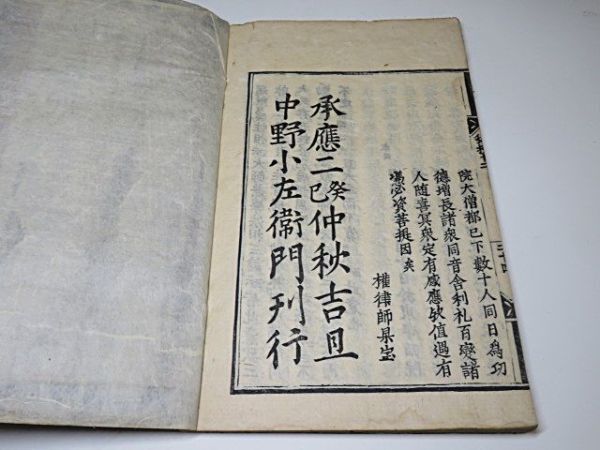 院大僧都已下數十人同日爲功
德增長諸衆同音舍利礼百遍諸
人随喜冥衆定有感應欤值遇有
資菩提因矣
權律師杲宝
承應二癸巳仲秋吉旦
中野小左衛門刋行